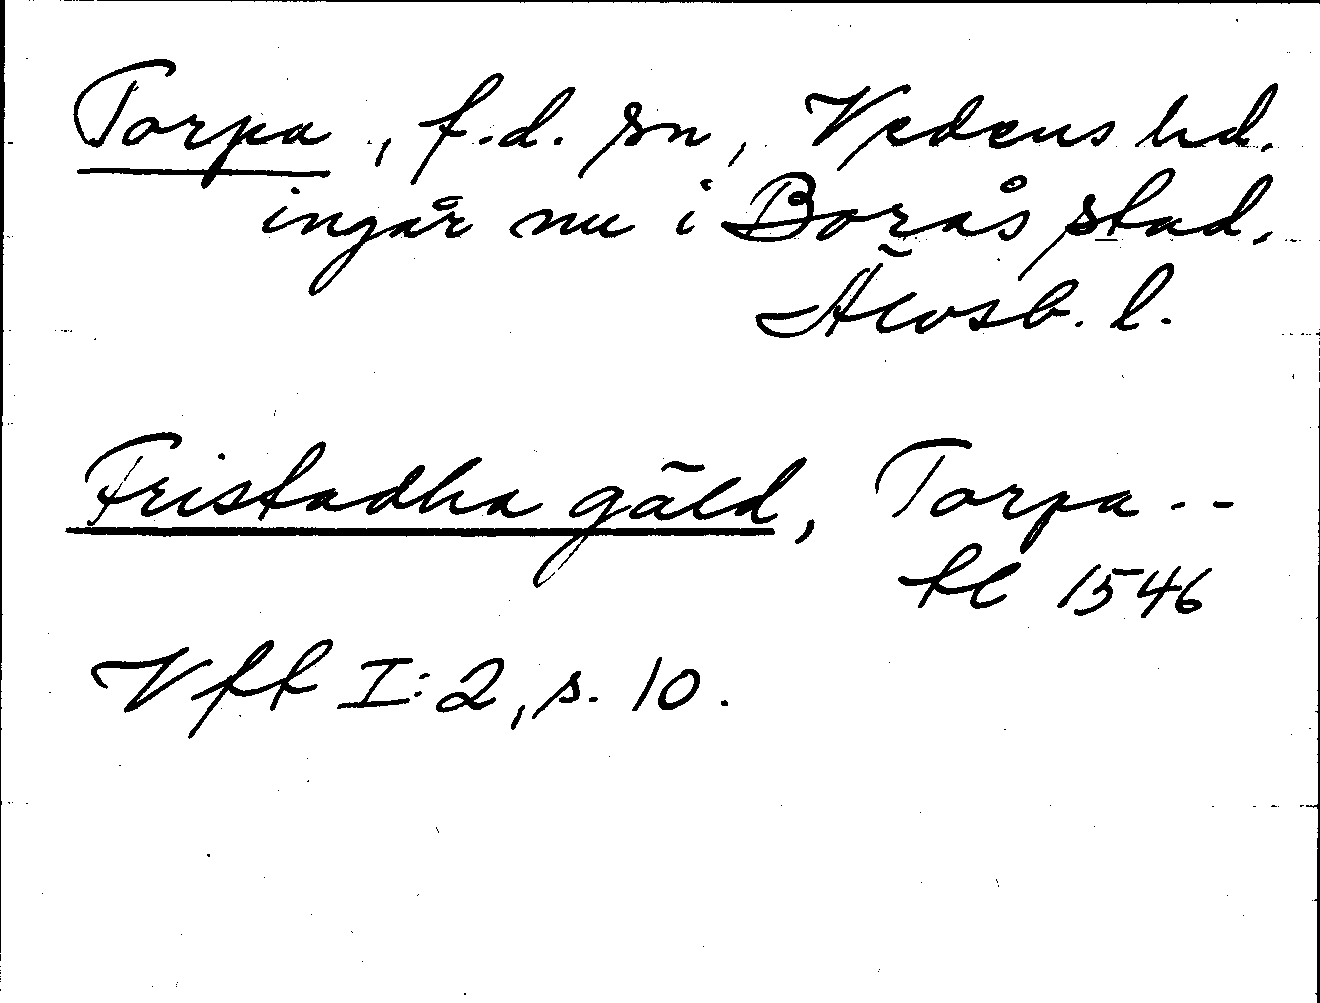 Torpa, f.d. sn, Vedens hd.
ingår nu i Borås stad,
Älvsb. l.
Fristadha gäld, Torpa --
kl 1546
Vff I:2, s. 10.